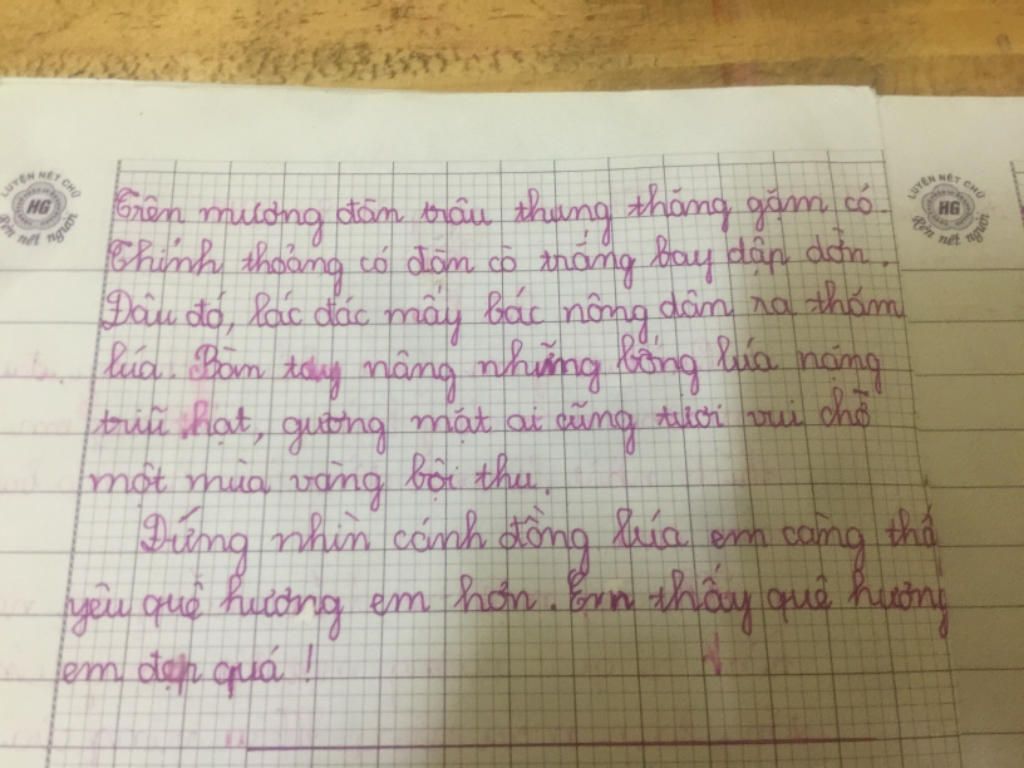 LUYỆN NÉT CHỮ
HG
Rèn nết người
LUYỆN NÉT CHỮ
HG
Rèn nết người
Trên mương đàn trâu thung thăng gặm cỏ.
Thỉnh thoảng có đàn cò trắng bay dập dờn.
Đâu đó, lác đác mấy bác nông dân ra thăm
lúa. Bàn tay nâng những bông lúa nặng
trĩu hạt, gương mặt ai cũng tươi vui chờ
một mùa vàng bội thu.
Đứng nhìn cánh đồng lúa em càng thấ
yêu quê hương em hơn. Em thấy quê hương
em đẹp quá !